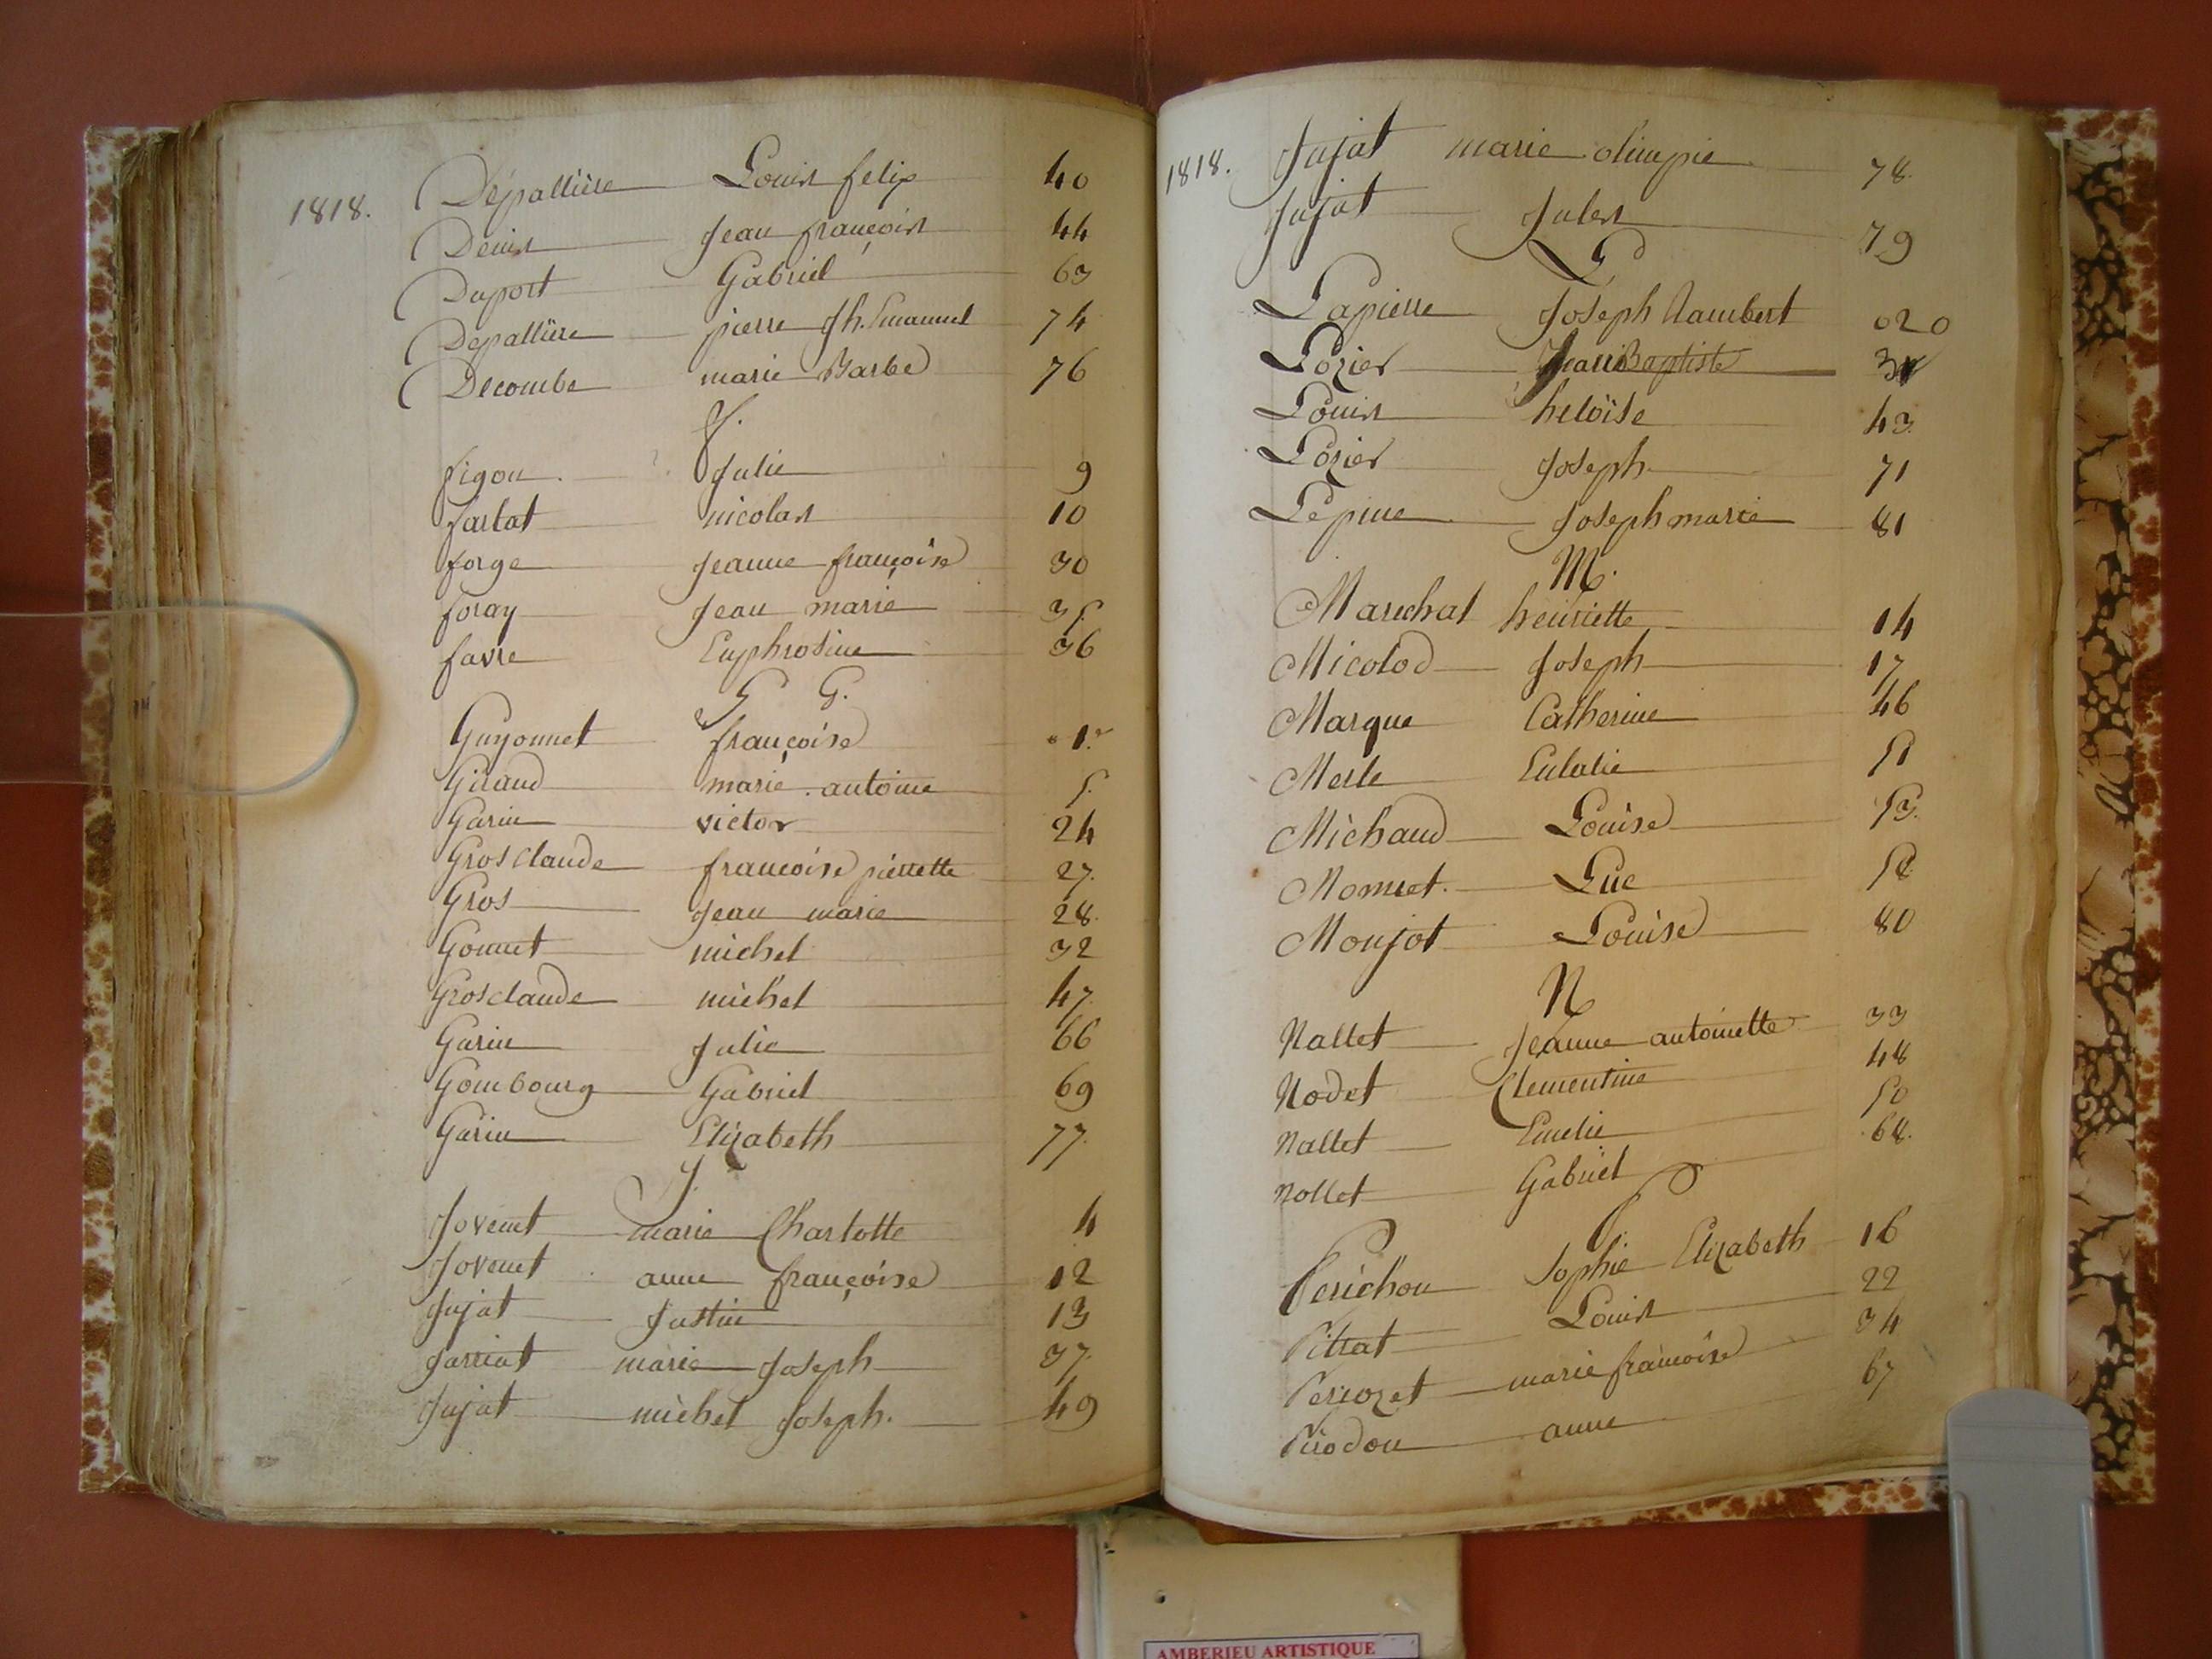 1818. Dépallière Louis felix 40
Denis Jean françois 44
Duport Gabriel 63
Depallière pierre Jh. Emanuel 74
Decombe marie Barbe 76
f.
figou Julie 9
farlat nicolas 10
forge Jeanne françoise 30
foray Jean marie 35
favre Euphrosine 36
G G.
Guyonnet françoise 1.er
Giraud marie antoine 5.
Garin victor 24
Grosclaude francoise pierrette 27.
Gros Jean marie 28.
Gonnet michel 32
Grosclaude michel 47.
Garin Julie 66
Gombourg Gabriel 69
Garin Elizabeth 77.
J.
Jovenet marie Charlotte 4
Jovenet anne françoise 12
Jujat Justin 13
Jarriat marie Joseph 37.
Jujat michel Joseph. 49
1818. Jujat marie olimpie 78.
Jujat Jules 79
L
Lapierre Joseph Rambert 020
Lozier Baptiste
Louis heloïse 43.
Lozier Joseph 71
Lépine Joseph marie 81
M.
Marechal henriette 14
Micolod Joseph 17
Marque Catherine 46
Merle Eulalie 51
Michaud Louise 53.
Monnet. Luc 58
Monjot Louise 80
N
Nallet Jeanne antoinette 33
Nodet Clementine 48
Nallet Emelie 50
Nollet Gabriel 68.
P.
Perichon Sophie Elizabeth 16
Pittat Louis 22
Perrozet marie françoise 34
Pirodon anne 67
AMBERIEU ARTISTIQUE